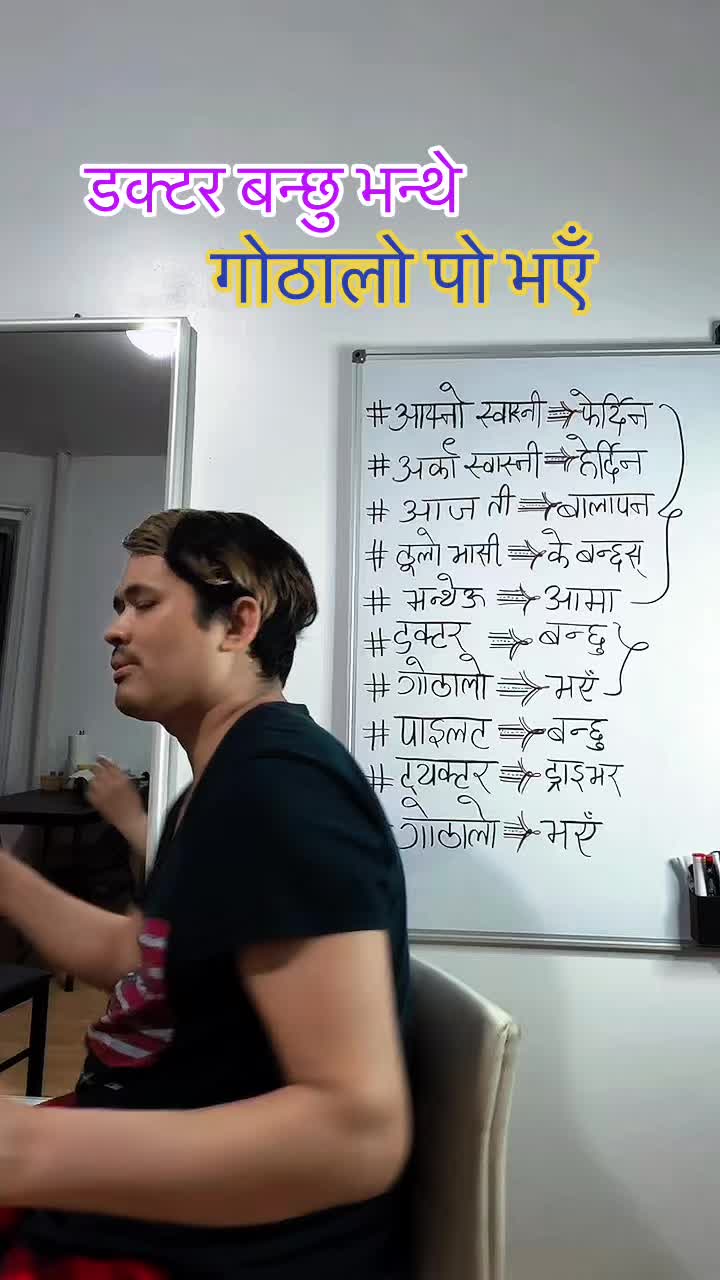 डक्टर बन्छु भन्थे
गोठालो पो भएँ
# आफ्नो स्वास्नी ⇒ फेर्दिन
# अर्को स्वास्नी ⇒ हेर्दिन
# आज ती ⇒ बालापन
# ठूलो भासी ⇒ के बन्छस्
# भन्थेऊ ⇒ आमा
# डक्टर ⇒ बन्छु
# गोठालो ⇒ भएँ
# पाइलट ⇒ बन्छु
# ट्यक्टर ⇒ ड्राइभर
गोठालो ⇒ भएँ